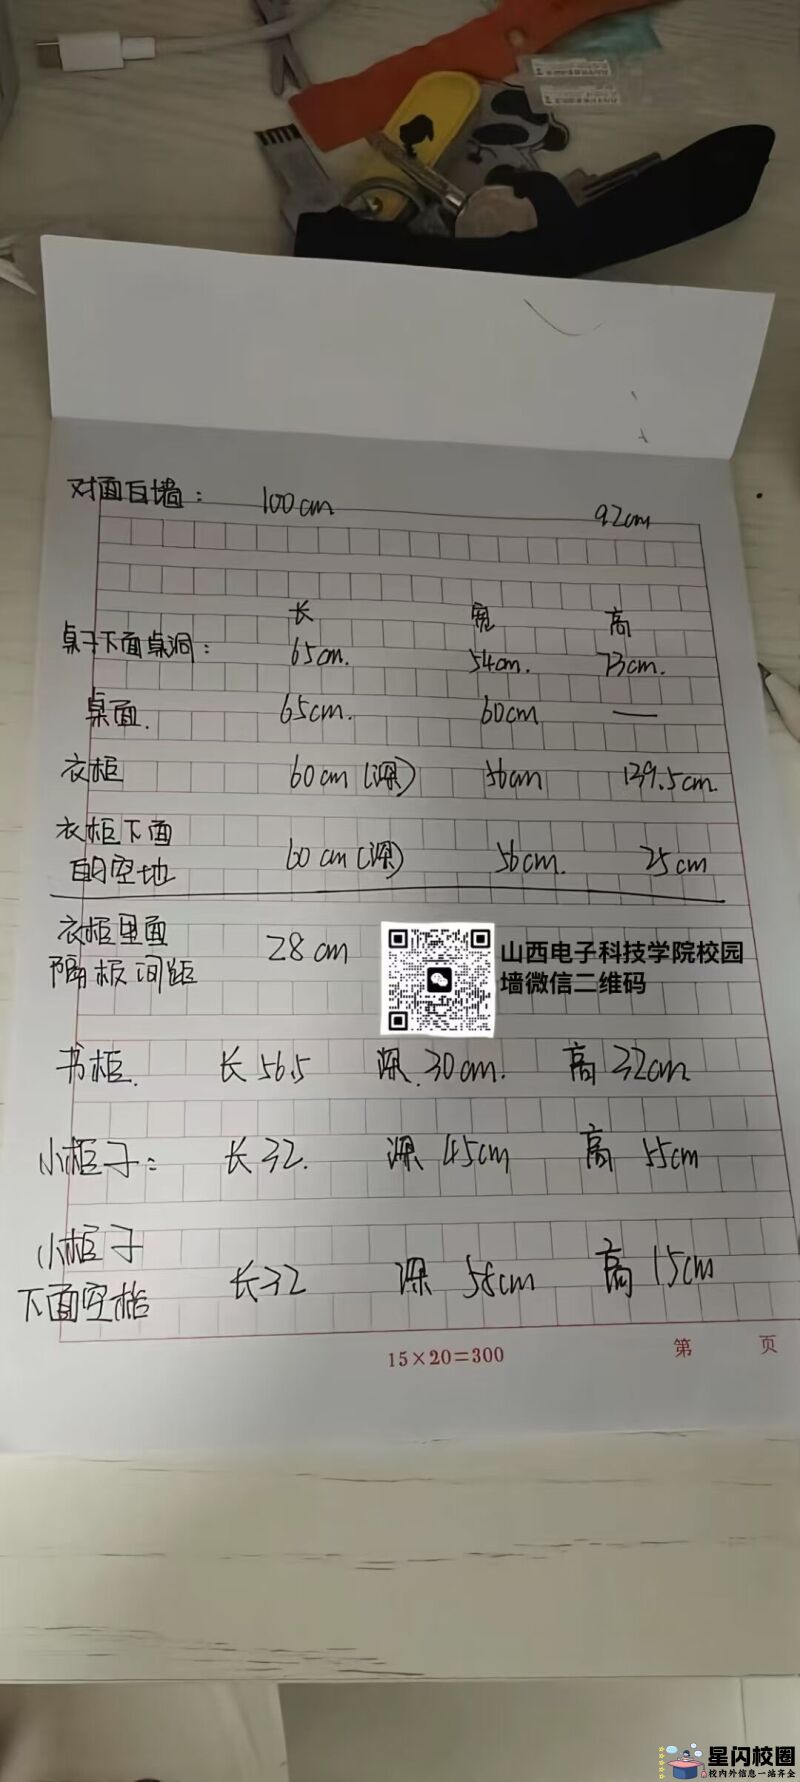 对面白墙： 100cm 92cm
长 宽 高
桌子下面桌洞： 65cm. 54cm. 73cm.
桌面. 65cm. 60cm —
衣柜 60cm(深) 56cm 139.5cm.
衣柜下面 60cm(深) 56cm. 25cm
的空地
衣柜里面 28cm
隔板间距
山西电子科技学院校园
墙微信二维码
书柜. 长56.5 深.30cm. 高32cm
小柜子： 长32. 深45cm 高55cm
小柜子 长32 深58cm 高15cm
下面空格
15×20=300 第 页
星闪校圈
校内外信息一站齐全